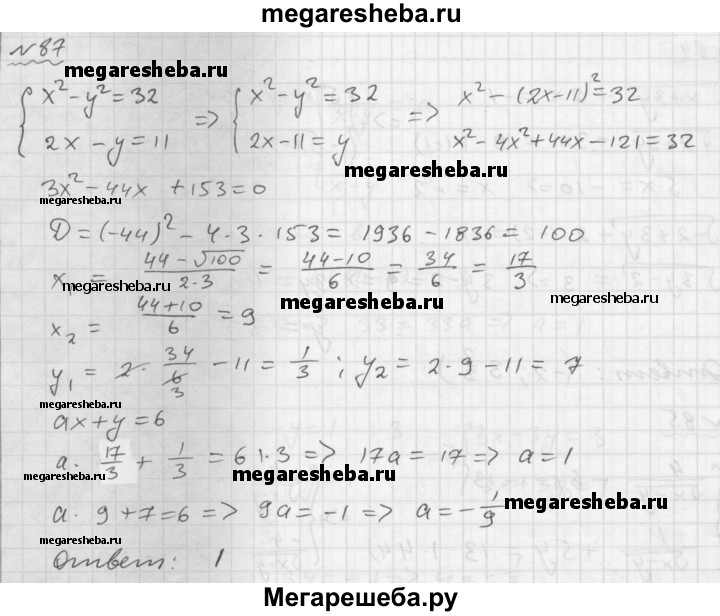 megaresheba.ru
№87
megaresheba.ru
{ x² - y² = 32 => { x² - y² = 32 => x² - (2x - 11)² = 32
2x - y = 11 2x - 11 = y x² - 4x² + 44x - 121 = 32
megaresheba.ru
3x² - 44x + 153 = 0
megaresheba.ru
D = (-44)² - 4·3·153 = 1936 - 1836 = 100
x₁ = (44 - √100)/(2·3) = (44 - 10)/6 = 34/6 = 17/3
megaresheba.ru megaresheba.ru megaresheba.ru
x₂ = (44 + 10)/6 = 9
y₁ = 2·34/6 3 - 11 = 1/3 ; y₂ = 2·9 - 11 = 7
megaresheba.ru
ax + y = 6
a·17/3 + 1/3 = 6 |·3 => 17a = 17 => a = 1
megaresheba.ru megaresheba.ru
a·9 + 7 = 6 => 9a = -1 => a = -1/9
megaresheba.ru
megaresheba.ru
Ответ: 1
Мегарешеба.ру